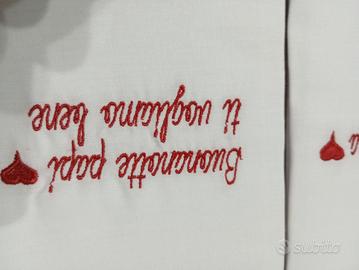 Buonanotte papi
ti vogliamo bene
subito